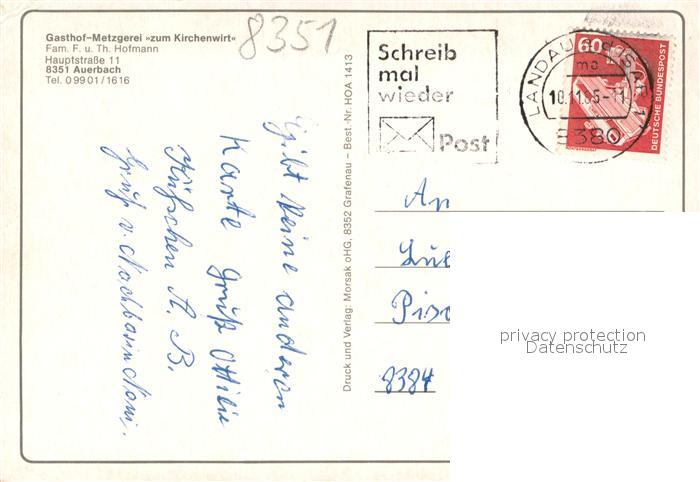 Gasthof-Metzgerei »zum Kirchenwirt«
Fam. F. u. Th. Hofmann
Hauptstraße 11
8351 Auerbach
Tel. 09901/1616
8351
Schreib
mal
wieder
Post
LANDAU ISAR 1
ma
10.11.85-11
8380
60
DEUTSCHE BUNDESPOST
Gibt keine anderen
Karte Gruß Ottilie
Küßchen A. B.
Gruß v. Nachbarin
Druck und Verlag: Morsak oHG, 8352 Grafenau – Best.-Nr. HOA 1413
An
8384
privacy protection
Datenschutz